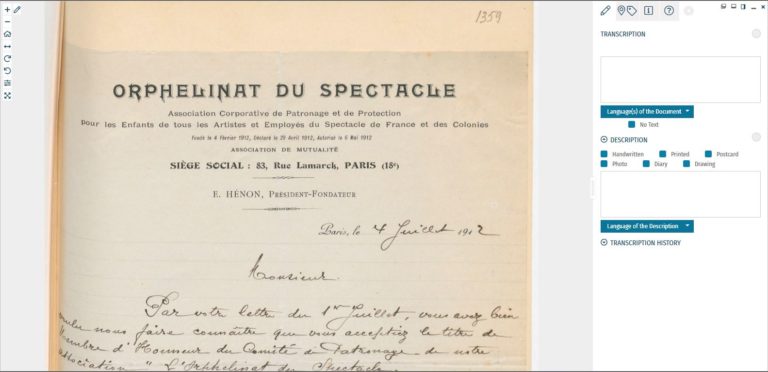 1359
TRANSCRIPTION
ORPHELINAT DU SPECTACLE
Association Corporative de Patronage et de Protection
Pour les Enfants de tous les Artistes et Employés du Spectacle de France et des Colonies
Fondé le 4 Février 1912, Déclaré le 29 Avril 1912, Autorisé le 6 Mai 1912
ASSOCIATION DE MUTUALITÉ
SIÈGE SOCIAL : 83, Rue Lamarck, PARIS (18e)
E. HÉNON, PRÉSIDENT-FONDATEUR
Paris, le 4 Juillet 1912
Monsieur.
Par votre lettre du 1er Juillet, vous avez bien
voulu nous faire connaître que vous acceptiez le titre de
Membre d'Honneur du Comité de Patronage de notre
association " L'Orphelinat du Spectacle
Language(s) of the Document
No Text
DESCRIPTION
Handwritten Printed Postcard
Photo Diary Drawing
Language of the Description
TRANSCRIPTION HISTORY